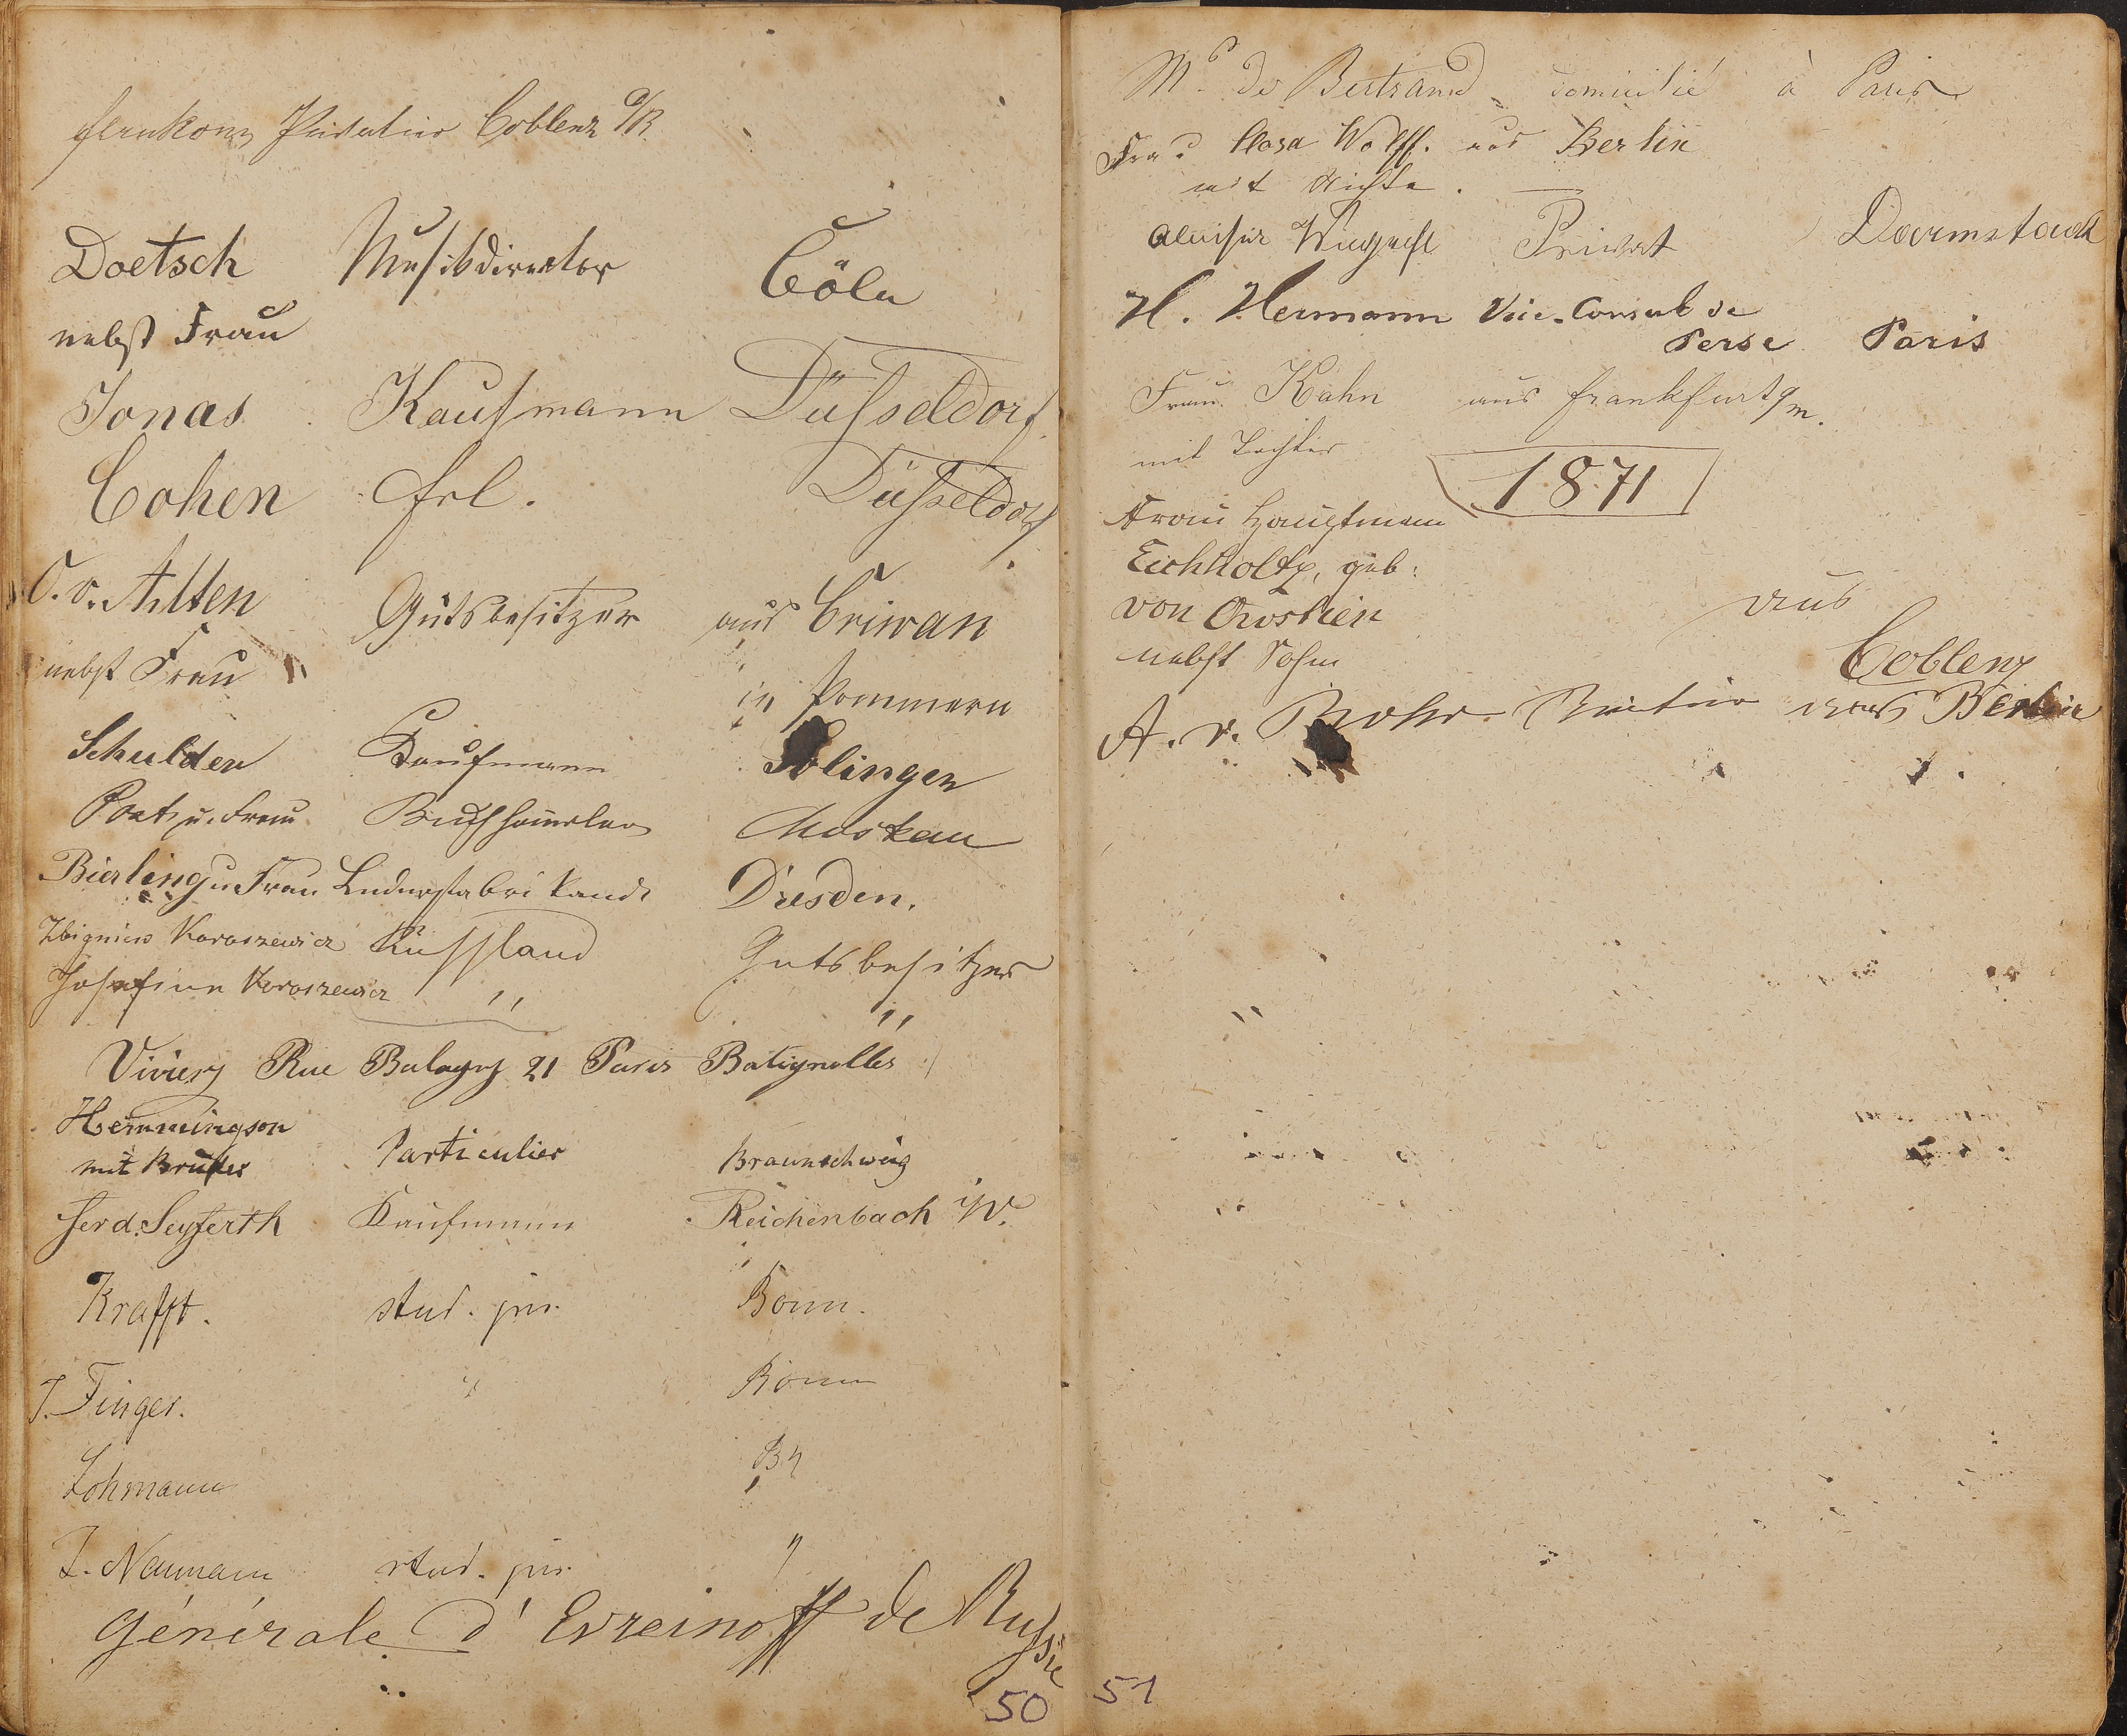 Coblenz a/R
Doetsch Musikdirector Cöln
nebst Frau
Jonas Kaufmann Düsseldorf
Cohen Frl. Düsseldorf
v. Alten Gutsbesitzer aus Criwan
nebst Frau in Pommern
Schulden Kaufmann Solingen
u. Frau Buchhändler Moskau
Bierling u. Frau Lederfabrikant Dresden.
Zbigniew Karaszewicz Russland Gutsbesitzer
Josefine Karaszewicz " "
Rue Balagny 21 Paris Batignolles
Hemmingson
mit Bruder Particulier Braunschweig
Ferd. Seyferth Kaufmann Reichenbach i/V.
Krafft. stud. jur. Bonn.
J. Finger. " Bonn
Lohmann
Naumann stud. jur. "
Générale d'Evreinoff de Russie
50
Mr de Bertrand domicilié à Paris
Frau Rosa Wolff. aus Berlin
mit Nichte.
Privat Darmstadt
H. Hermann Vice-Consul de
Perse Paris
Frau Kahn aus Frankfurt a/m.
mit Tochter
1871
Frau Hauptmann
Eichholtz, geb:
von
nebst Sohn aus Coblenz
A. v. Rohr Rentier aus Berlin
51